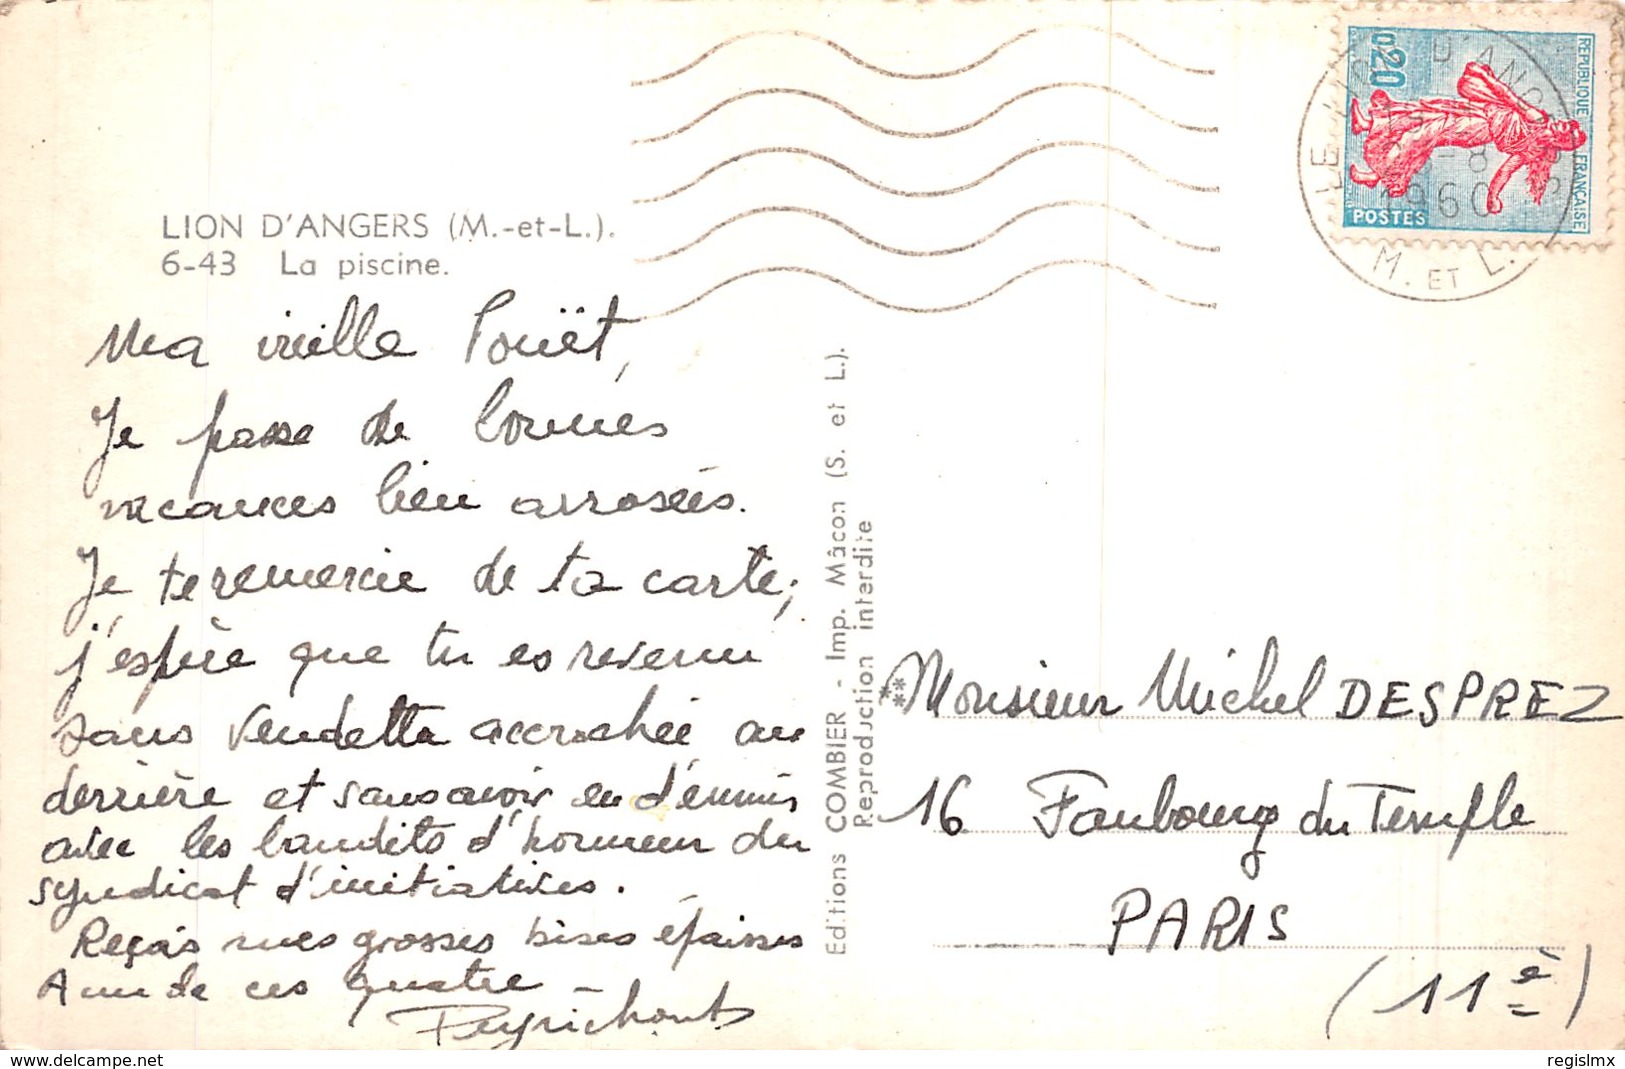 LION D'ANGERS (M.-et-L.).
6-43 La piscine.
Ma vieille Pouët,
Je passe de bonnes
vacances bien arrosées.
Je te remercie de ta carte;
j'espère que tu es revenu
sans vendetta accrochée au
derrière et sans avoir eu d'ennuis
avec les bandits d'honneur du
syndicat d'initiatives.
Reçois mes grosses bises épaisses
A un de ces quatre -
Editions COMBIER - Imp. Mâcon (S. et L.).
Reproduction interdite
0,20
REPUBLIQUE FRANÇAISE
POSTES
LE LION D'ANGERS
-8
1960
M. ET L.
Monsieur Michel DESPREZ
16 Faubourg du Temple
PARIS
(11è)
delcampe.net
regislmx